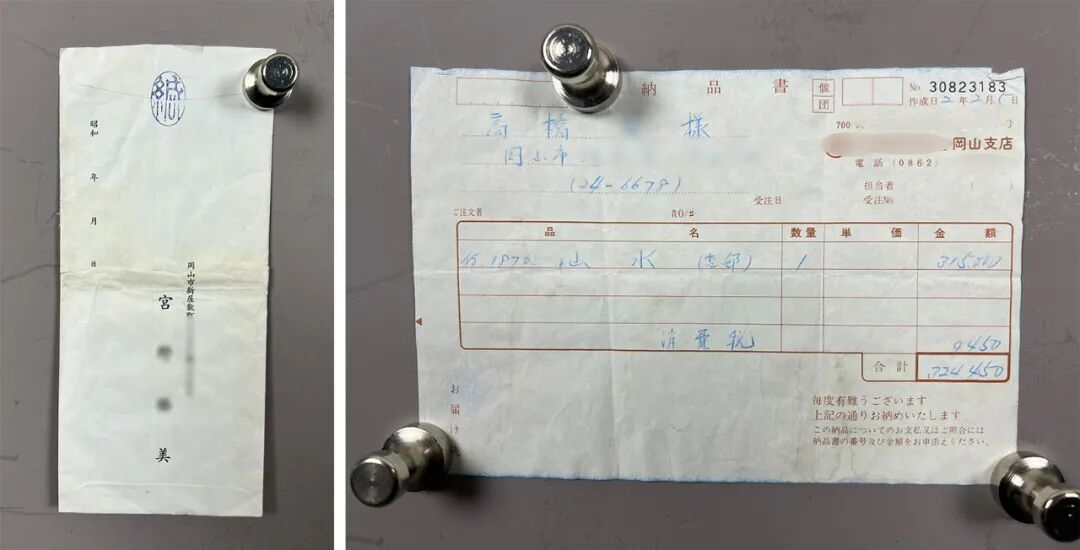 緘
昭和　年　月　日
岡山市新屋敷町
宮
美
納品書
個
団
No. 30823183
作成日 2年2月 日
高橋　様
700
号
岡山支店
岡山市
電話（0862）
(24-6678)
担当者　（　）
受注日
受注No
ご注文者
品名　数量　単価　金額
山水　1　315,000
消費税　9450
合計　324,450
お届け
毎度有難うございます
上記の通りお納めいたします
この納品についてのお支払又はご照合には
納品書の番号及び金額をお申添えください。